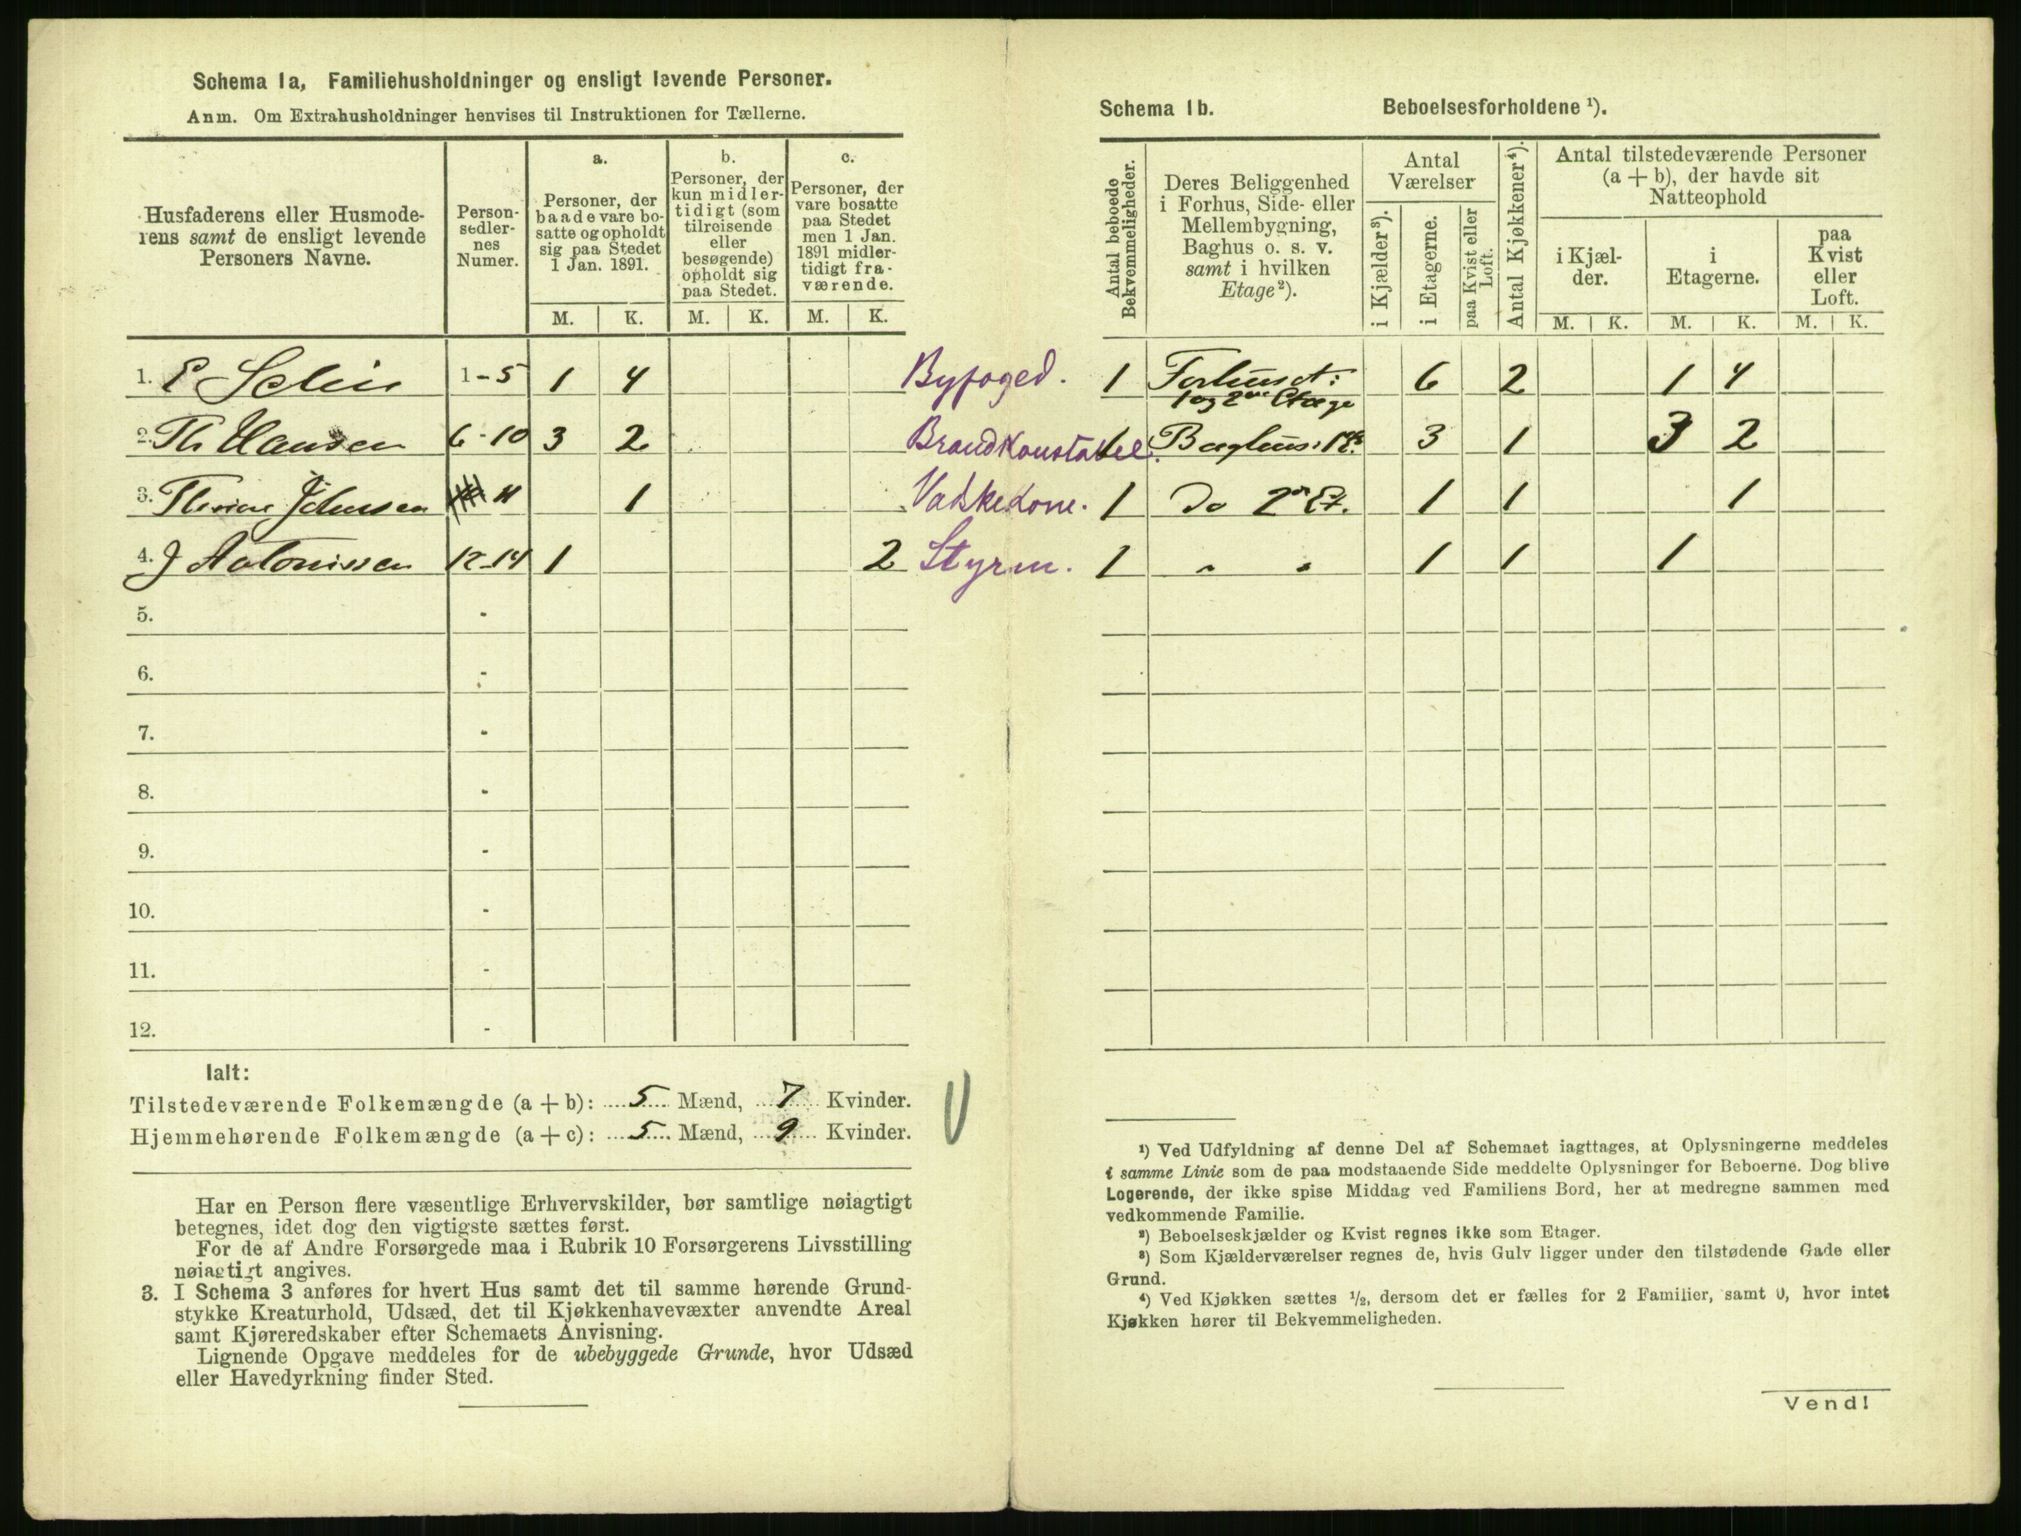 Schema 1a, Familiehusholdninger og ensligt levende Personer.
Anm. Om Extrahusholdninger henvises til Instruktionen for Tællerne.
Husfaderens eller Husmode-
rens samt de ensligt levende
Personers Navne.
Person-
sedler-
nes
Numer.
a.
Personer, der
baade vare bo-
satte og opholdt
sig paa Stedet
1 Jan. 1891.
b.
Personer, der
kun midler-
tidigt (som
tilreisende
eller
besøgende)
opholdt sig
paa Stedet.
c.
Personer, der
vare bosatte
paa Stedet
men 1 Jan.
1891 midler-
tidigt fra-
værende.
M. K. M. K. M. K.
1. E Selin 1-5 1 4 Byfoged.
2. Th Hansen 6-10 3 2 Brandkonstabel.
3. Johnsen 11 1 Vaskekone.
4. J Antonissen 12-14 1 2 Styrm.
5. -
6. -
7. -
8. -
9. -
10. -
11. -
12. -
Ialt:
Tilstedeværende Folkemængde (a + b): 5 Mænd, 7 Kvinder.
Hjemmehørende Folkemængde (a + c): 5 Mænd, 9 Kvinder.
Har en Person flere væsentlige Erhvervskilder, bør samtlige nøiagtigt
betegnes, idet dog den vigtigste sættes først.
For de af Andre Forsørgede maa i Rubrik 10 Forsørgerens Livsstilling
nøiagtigt angives.
3. I Schema 3 anføres for hvert Hus samt det til samme hørende Grund-
stykke Kreaturhold, Udsæd, det til Kjøkkenhavevæxter anvendte Areal
samt Kjøreredskaber efter Schemaets Anvisning.
Lignende Opgave meddeles for de ubebyggede Grunde, hvor Udsæd
eller Havedyrkning finder Sted.
Schema 1b. Beboelsesforholdene ¹).
Antal beboede
Bekvemmeligheder.
Deres Beliggenhed
i Forhus, Side- eller
Mellembygning,
Baghus o. s. v.
samt i hvilken
Etage²).
Antal
Værelser
i Kjælder³).
i Etagerne.
paa Kvist eller
Loft.
Antal Kjøkkener⁴).
Antal tilstedeværende Personer
(a + b), der havde sit
Natteophold
i Kjæl-
der.
i
Etagerne.
paa
Kvist
eller
Loft.
M. K. M. K. M. K.
1 Forhuset: 6 2 1 4
1 og 2den Etage
1 Baghus: 1 3 1 3 2
1 Do 2den Et. 1 1 1
1 " " 1 1 1
¹) Ved Udfyldning af denne Del af Schemaet iagttages, at Oplysningerne meddeles
i samme Linie som de paa modstaaende Side meddelte Oplysninger for Beboerne. Dog blive
Logerende, der ikke spise Middag ved Familiens Bord, her at medregne sammen med
vedkommende Familie.
²) Beboelseskjælder og Kvist regnes ikke som Etager.
³) Som Kjælderværelser regnes de, hvis Gulv ligger under den tilstødende Gade eller
Grund.
⁴) Ved Kjøkken sættes ½, dersom det er fælles for 2 Familier, samt 0, hvor intet
Kjøkken hører til Bekvemmeligheden.
Vend!